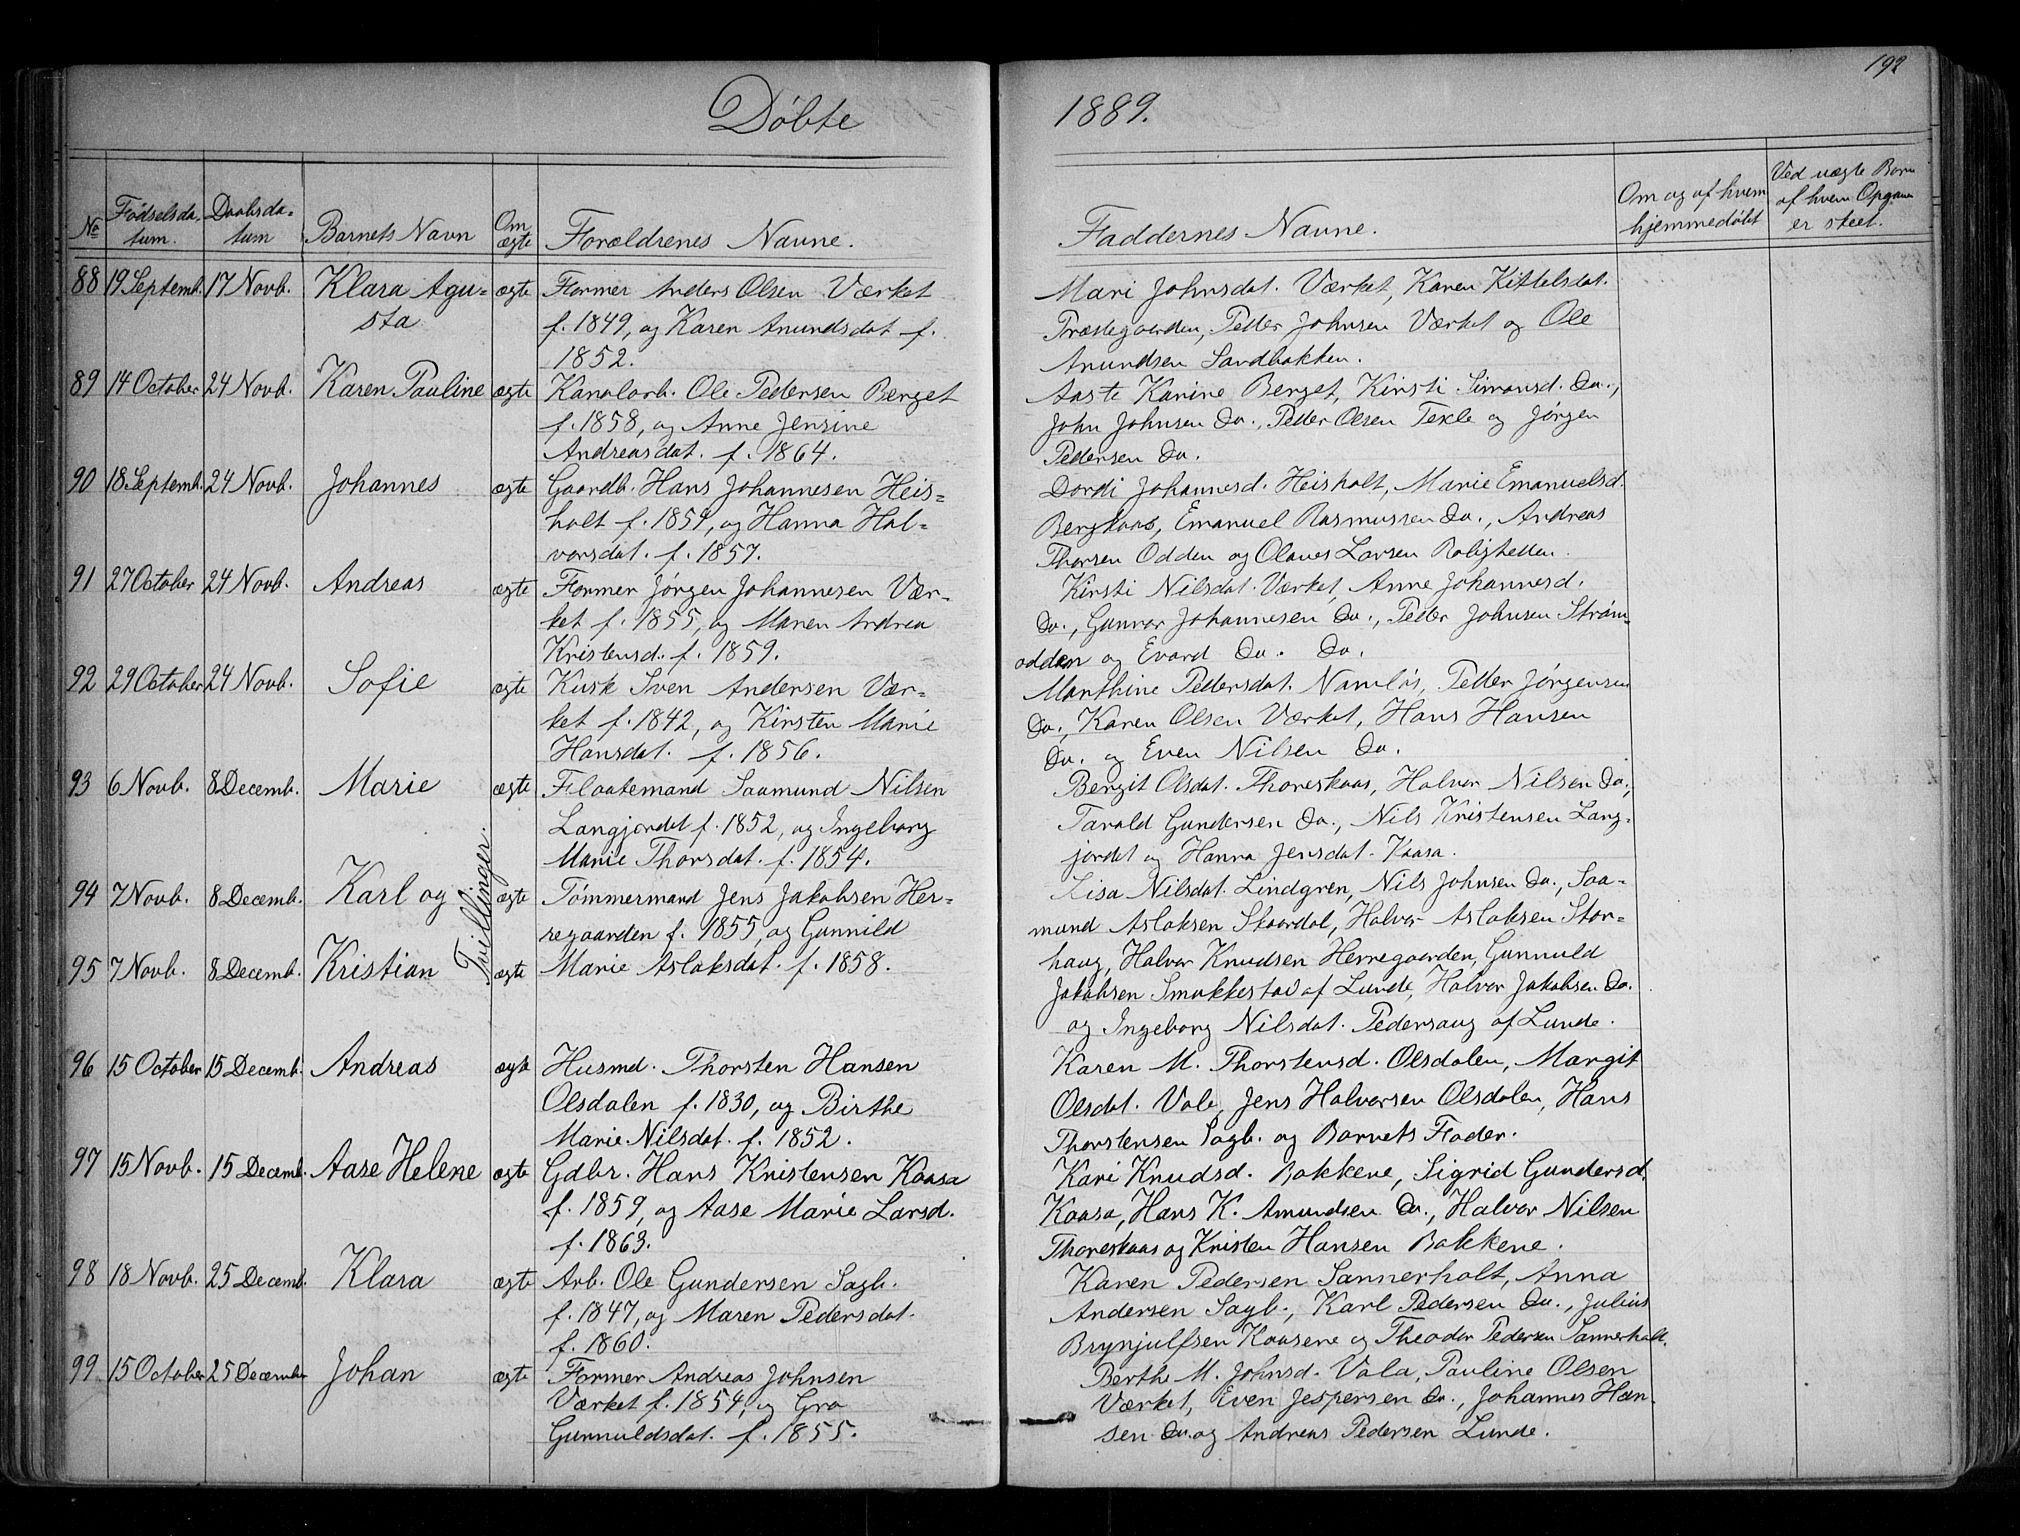 192
Døbte 1889.
No Fødselsdatum. Daabsdatum Barnets Navn Om ægte Forældrenes Navne. Faddernes Navne. Om og af hvem hjemmedøbt Ved uægte Børn af hvem Opgave er skeet.
88 19 Septemb. 17 Novb. Klara Agu- ægte Former Anders Olsen Værket
sta f. 1849, og Karen Anundsdat f.
1852.
Mari Johnsdat. Værket, Karen Kittelsdat.
Præstegaarden, Peder Johnsen Værket og Ole
Anundsen Sandbakken.
89 14 October 24 Novb. Karen Pauline ægte Kanalarb. Ole Pedersen Berget
f. 1858, og Anne Jensine
Andreasdat. f. 1864.
Aaste Karine Berget, Kirsti Simonsd. Do.,
John Johnsen Do., Peder Olsen Texle og Jørgen
Pedersen Do.
90 18 Septemb. 24 Novb. Johannes ægte Gaardb. Hans Johannesen Heis-
holt f. 1854, og Hanna Hal-
vorsdat. f. 1857.
Dordi Johannesd. Heisholt, Marie Emanuelsd.
Bergkaas, Emanuel Rasmussen Do., Andreas
Thorsen Odden og Olaves Larsen Roligheden.
91 27 October 24 Novb. Andreas ægte Former Jørgen Johannesen Vær-
ket f. 1855, og Maren Andrea
Kristensd. f. 1859.
Kirsti Nilsdat. Værket, Anne Johannesd.
Do., Gunnar Johannesen Do., Peder Johnsen Strøm-
odden og Evard Do. Do.
92 29 October 24 Novb. Sofie ægte Kusk Sven Andersen Vær-
ket f. 1842, og Kirsten Marie
Hansdat. f. 1856.
Marthine Pedersdat. Namløs, Peder Jørgensen
Do., Karen Olsen Værket, Hans Hansen
Do. og Even Nilsen Do.
93 6 Novb. 8 Decemb. Marie ægte Fløatemand Saamund Nilsen
Langjordet f. 1852, og Ingeborg
Marie Thorsdat. f. 1854.
Bergit Olsdat. Thoreskaas, Halvor Nilsen Do.,
Tarald Gundersen Do., Nils Kristensen Lang-
jordet og Hanna Jensdat. Kaasa.
94 7 Novb. 8 Decemb. Karl og Tvillinger. ægte Tømmermand Jens Jakobsen Her-
regaarden f. 1855, og Gunnild
95 7 Novb. 8 Decemb. Kristian ægte Marie Aslaksdat. f. 1858.
Lisa Nilsdat. Lindgren, Nils Johnsen Do., Saa-
mund Aslaksen Skaardal, Halvor Aslaksen Stor-
haug, Halvor Knudsen Herregaarden, Gunnuld
Jakobsen Smukkestad af Lunde, Halvor Jakobsen Do.
og Ingeborg Nilsdat. Pedersaug af Lunde.
96 15 October 15 Decemb. Andreas ægte Husmd. Thorsten Hansen
Olsdalen f. 1830, og Birthe
Marie Nilsdat. f. 1852.
Karen M. Thorstensd. Olsdalen, Margit
Olsdat. Vala, Jens Halvorsen Olsdalen, Hans
Thorstensen Sagb. og Barnets Fader.
97 15 Novb. 15 Decemb. Aase Helene ægte Gdbr. Hans Kristensen Kaasa
f. 1859, og Aase Marie Larsd.
f. 1863.
Kari Knudsd. Bakkene, Sigrid Gundersd.
Kaasa, Hans K. Amundsen Do., Halvor Nilsen
Thoreskaas og Kristen Hansen Bakkene.
98 18 Novb. 25 Decemb. Klara ægte Arb. Ole Gundersen Sagb.
f. 1847, og Maren Pedersdat.
f. 1860.
Karen Pedersen Sannerholt, Anna
Andersen Sagb., Karl Pedersen Do., Julius
Brynjulfsen Kaasene og Theodor Pedersen Sannerholt.
99 15 October 25 December Johan ægte Former Andreas Johnsen
Værket f. 1854, og Gro
Gunnuldsdat. f. 1855.
Berthe M. Johnsd. Vala, Pauline Olsen
Værket, Even Jespersen Do., Johannes Han-
sen Do. og Andreas Pedersen Lunde.